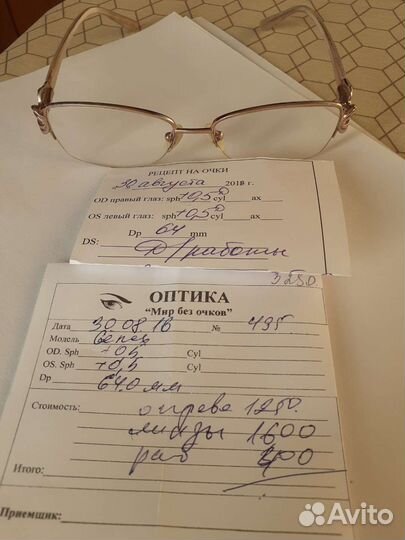 РЕЦЕПТ НА ОЧКИ
30 августа 2018 г.
OD правый глаз: sph +0,5 D cyl ax
OS левый глаз: sph +0,5 D cyl ax
Dp 64 mm
DS: Д/работы
3250
ОПТИКА
"Мир без очков"
Дата 30.08.18 № 495
Модель
OD. Sph +0,5 Cyl
OS. Sph +0,5 Cyl
Dp 64.0 мм
Стоимость: оправа 1250.
линзы 1600
раб 400
Итого:
Приемщик:
Avito